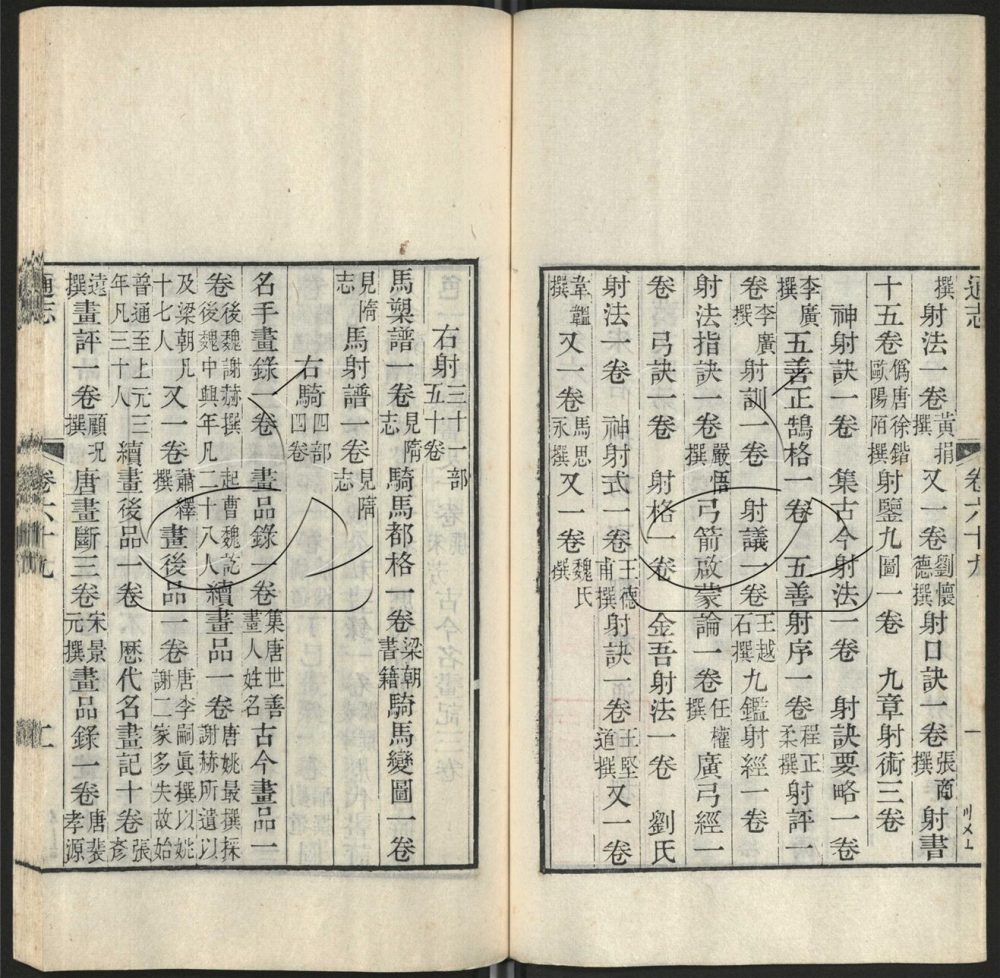 通志 卷六十九 一
撰 射法一卷 黃損撰 又一卷 劉懷德撰 射口訣一卷 張商撰 射書
十五卷 僞唐徐鍇歐陽陌撰 射鑒九圖一卷 九章射術三卷
神射訣一卷 集古今射法一卷 射訣要略一卷
李廣撰 五善正鵠格一卷 五善射序一卷 程正柔撰 射評一
卷 李廣撰 射訓一卷 射議一卷 王越石撰 九鑑射經一卷
射法指訣一卷 嚴悟撰 弓箭啟蒙論一卷 任權撰 廣弓經一
卷 弓訣一卷 射格一卷 金吾射法一卷 劉氏
射法一卷 神射式一卷 王德甫撰 射訣一卷 王堅道撰 又一卷
韋韞撰 又一卷 馬思永撰 又一卷 魏氏撰
右射 三十一部五十卷
馬槊譜一卷 見隋志 騎馬都格一卷 梁朝書籍 騎馬變圖一卷
見隋志 馬射譜一卷 見隋志
右騎 四部四卷
名手畫錄一卷 畫品錄一卷 集唐世善畫人姓名 古今畫品一
卷 後魏謝赫撰起曹魏訖後魏中興年凡二十八人 續畫品一卷 唐姚最撰採謝赫所遺以
及梁朝凡十七人 又一卷 蕭繹撰 畫後品一卷 唐李嗣真撰以姚謝二家多失故始
普通至上元三年凡三十人 續畫後品一卷 歷代名畫記十卷 張彥
遠撰 畫評一卷 顧況撰 唐畫斷三卷 宋景元撰 畫品錄一卷 唐裴孝源
通志